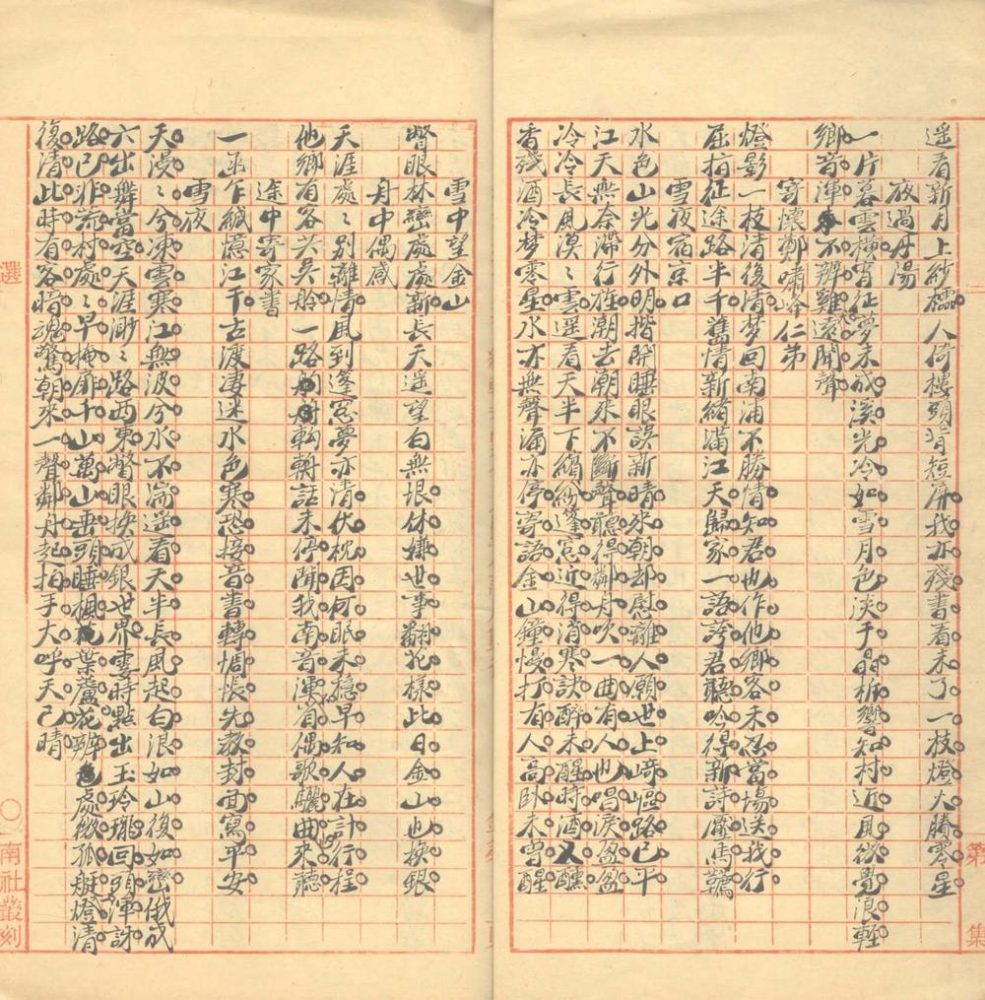 遥看新月上紗櫺人倚樓頭背短屏我亦殘書看未了一枝燈火勝零星
夜過丹陽
一片暮雲橫宵征夢未成溪光冷如雪月色淡于晶柝響知村近風微覺浪輕
鄉音渾不辨難遠聞聲
寄懷鄭嘯 仁弟
燈影一枝清後情夢回南浦不勝情知君也作他鄉客未忍當場送我行
屈指征途路半千舊情新緒滿江天歸家一語誇君聽吟得新詩壓馬韉
雪夜宿京口
水色山光分外明揩開睡眼誤新晴來朝却慰離人願世上崎嶇路已平
江天無奈滯行旌潮去潮來不斷聲聽得鄰舟吹一曲有人也唱淚盈盈
冷冷長風漠漠雲遥看天半下繽紛蓬窓近得消寒訣醉未醒時酒又醺
香殘酒冷梦零星水亦無聲漏亦停寄語金山鐘慢打有人高卧未曾醒
雪中望金山
瞥眼林巒處處新長天遥望白無垠休嫌世事翻花樣此日金山也换銀
舟中偶感
天涯處〻別離情風到蓬窓夢亦清伏枕因何眠未穩早知人在計行程
他鄉有客共吳舲一路 轔話未停聞我南音渾省偶歌驪曲也來聽
途中寄家書
一函乍緘憶江干古渡凄迷水色寒恐接音書轉惆悵先教封面寫平安
雪夜
天漫〻兮凍雲寒江無波兮水不 遥看天半長風起白浪如山復如巒俄成
六出舞當空天涯渺〻路西東瞥眼换成銀世界雲時點出玉玲瓏回頭渾訝
路已非荒村處〻早掩扉千山萬山垂頭睡楓葉蘆花辨處微孤艇燈清
復清此時有客暗魂驚朝來一聲鄰舟起拍手大呼天已晴
第 集
選
南社叢刻